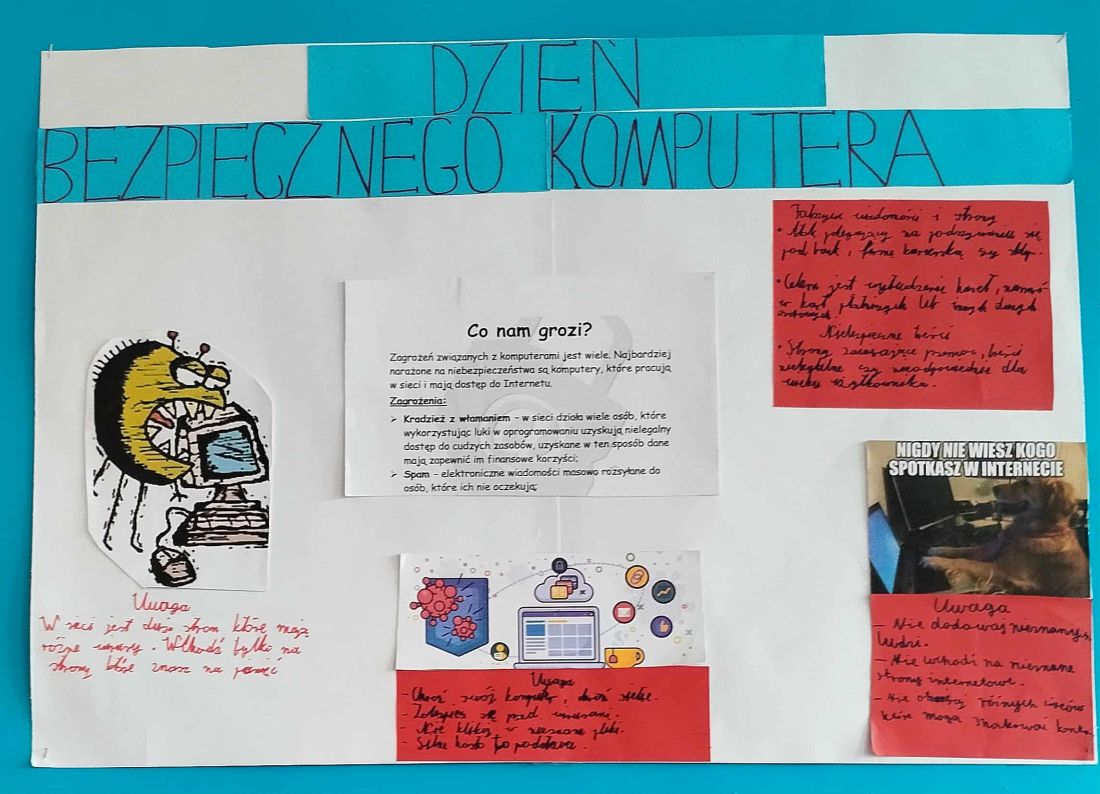 DZIEŃ
BEZPIECZNEGO KOMPUTERA
Fałszywe wiadomości i strony
• Atak polegający na podszywaniu się
pod bank, firmę kurierską czy sklep.
• Celem jest wyłudzenie haseł, numerów
kart płatniczych lub innych danych
osobowych.
Niebezpieczne treści
• Strony zawierające przemoc, treści
nielegalne czy nieodpowiednie dla
wieku użytkownika.
Co nam grozi?
Zagrożeń związanych z komputerami jest wiele. Najbardziej
narażone na niebezpieczeństwa są komputery, które pracują
w sieci i mają dostęp do Internetu.
Zagrożenia:
➢ Kradzież z włamaniem – w sieci działa wiele osób, które
wykorzystując luki w oprogramowaniu uzyskują nielegalny
dostęp do cudzych zasobów, uzyskane w ten sposób dane
mają zapewnić im finansowe korzyści;
➢ Spam – elektroniczne wiadomości masowo rozsyłane do
osób, które ich nie oczekują;
NIGDY NIE WIESZ KOGO
SPOTKASZ W INTERNECIE
Uwaga
W sieci jest dużo stron które mają
różne wirusy. Wchodź tylko na
strony które znasz na pamięć
Uwaga
- Chroń swój komputer, chroń siebie.
- Zabezpiecz się przed wirusami.
- Nie klikaj w nieznane pliki.
- Silne hasło to podstawa.
Uwaga
- Nie dodawaj nieznanych
ludzi.
- Nie wchodź na nieznane
strony internetowe.
- Nie otwieraj różnych linków
które mogą konto